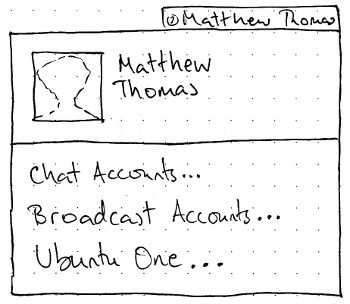 Matthew Thomas
Matthew
Thomas
Chat Accounts...
Broadcast Accounts...
Ubuntu One...